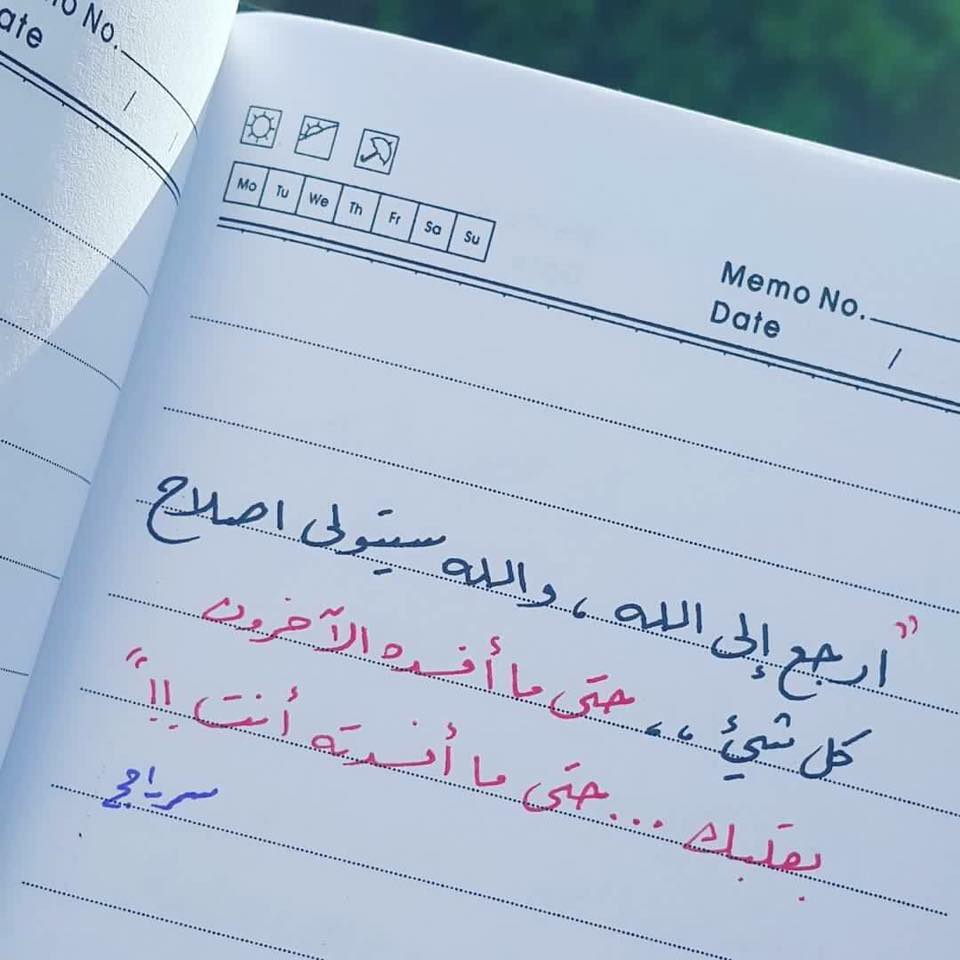 o No.
ate /
Mo Tu We Th Fr Sa Su
Memo No.
Date /
"ارجع إلى الله ، والله سيتولى اصلاح
كل شيئ ،، حتى ما أفسده الآخرون
بقلبك ... حتى ما أفسدته أنت !!"